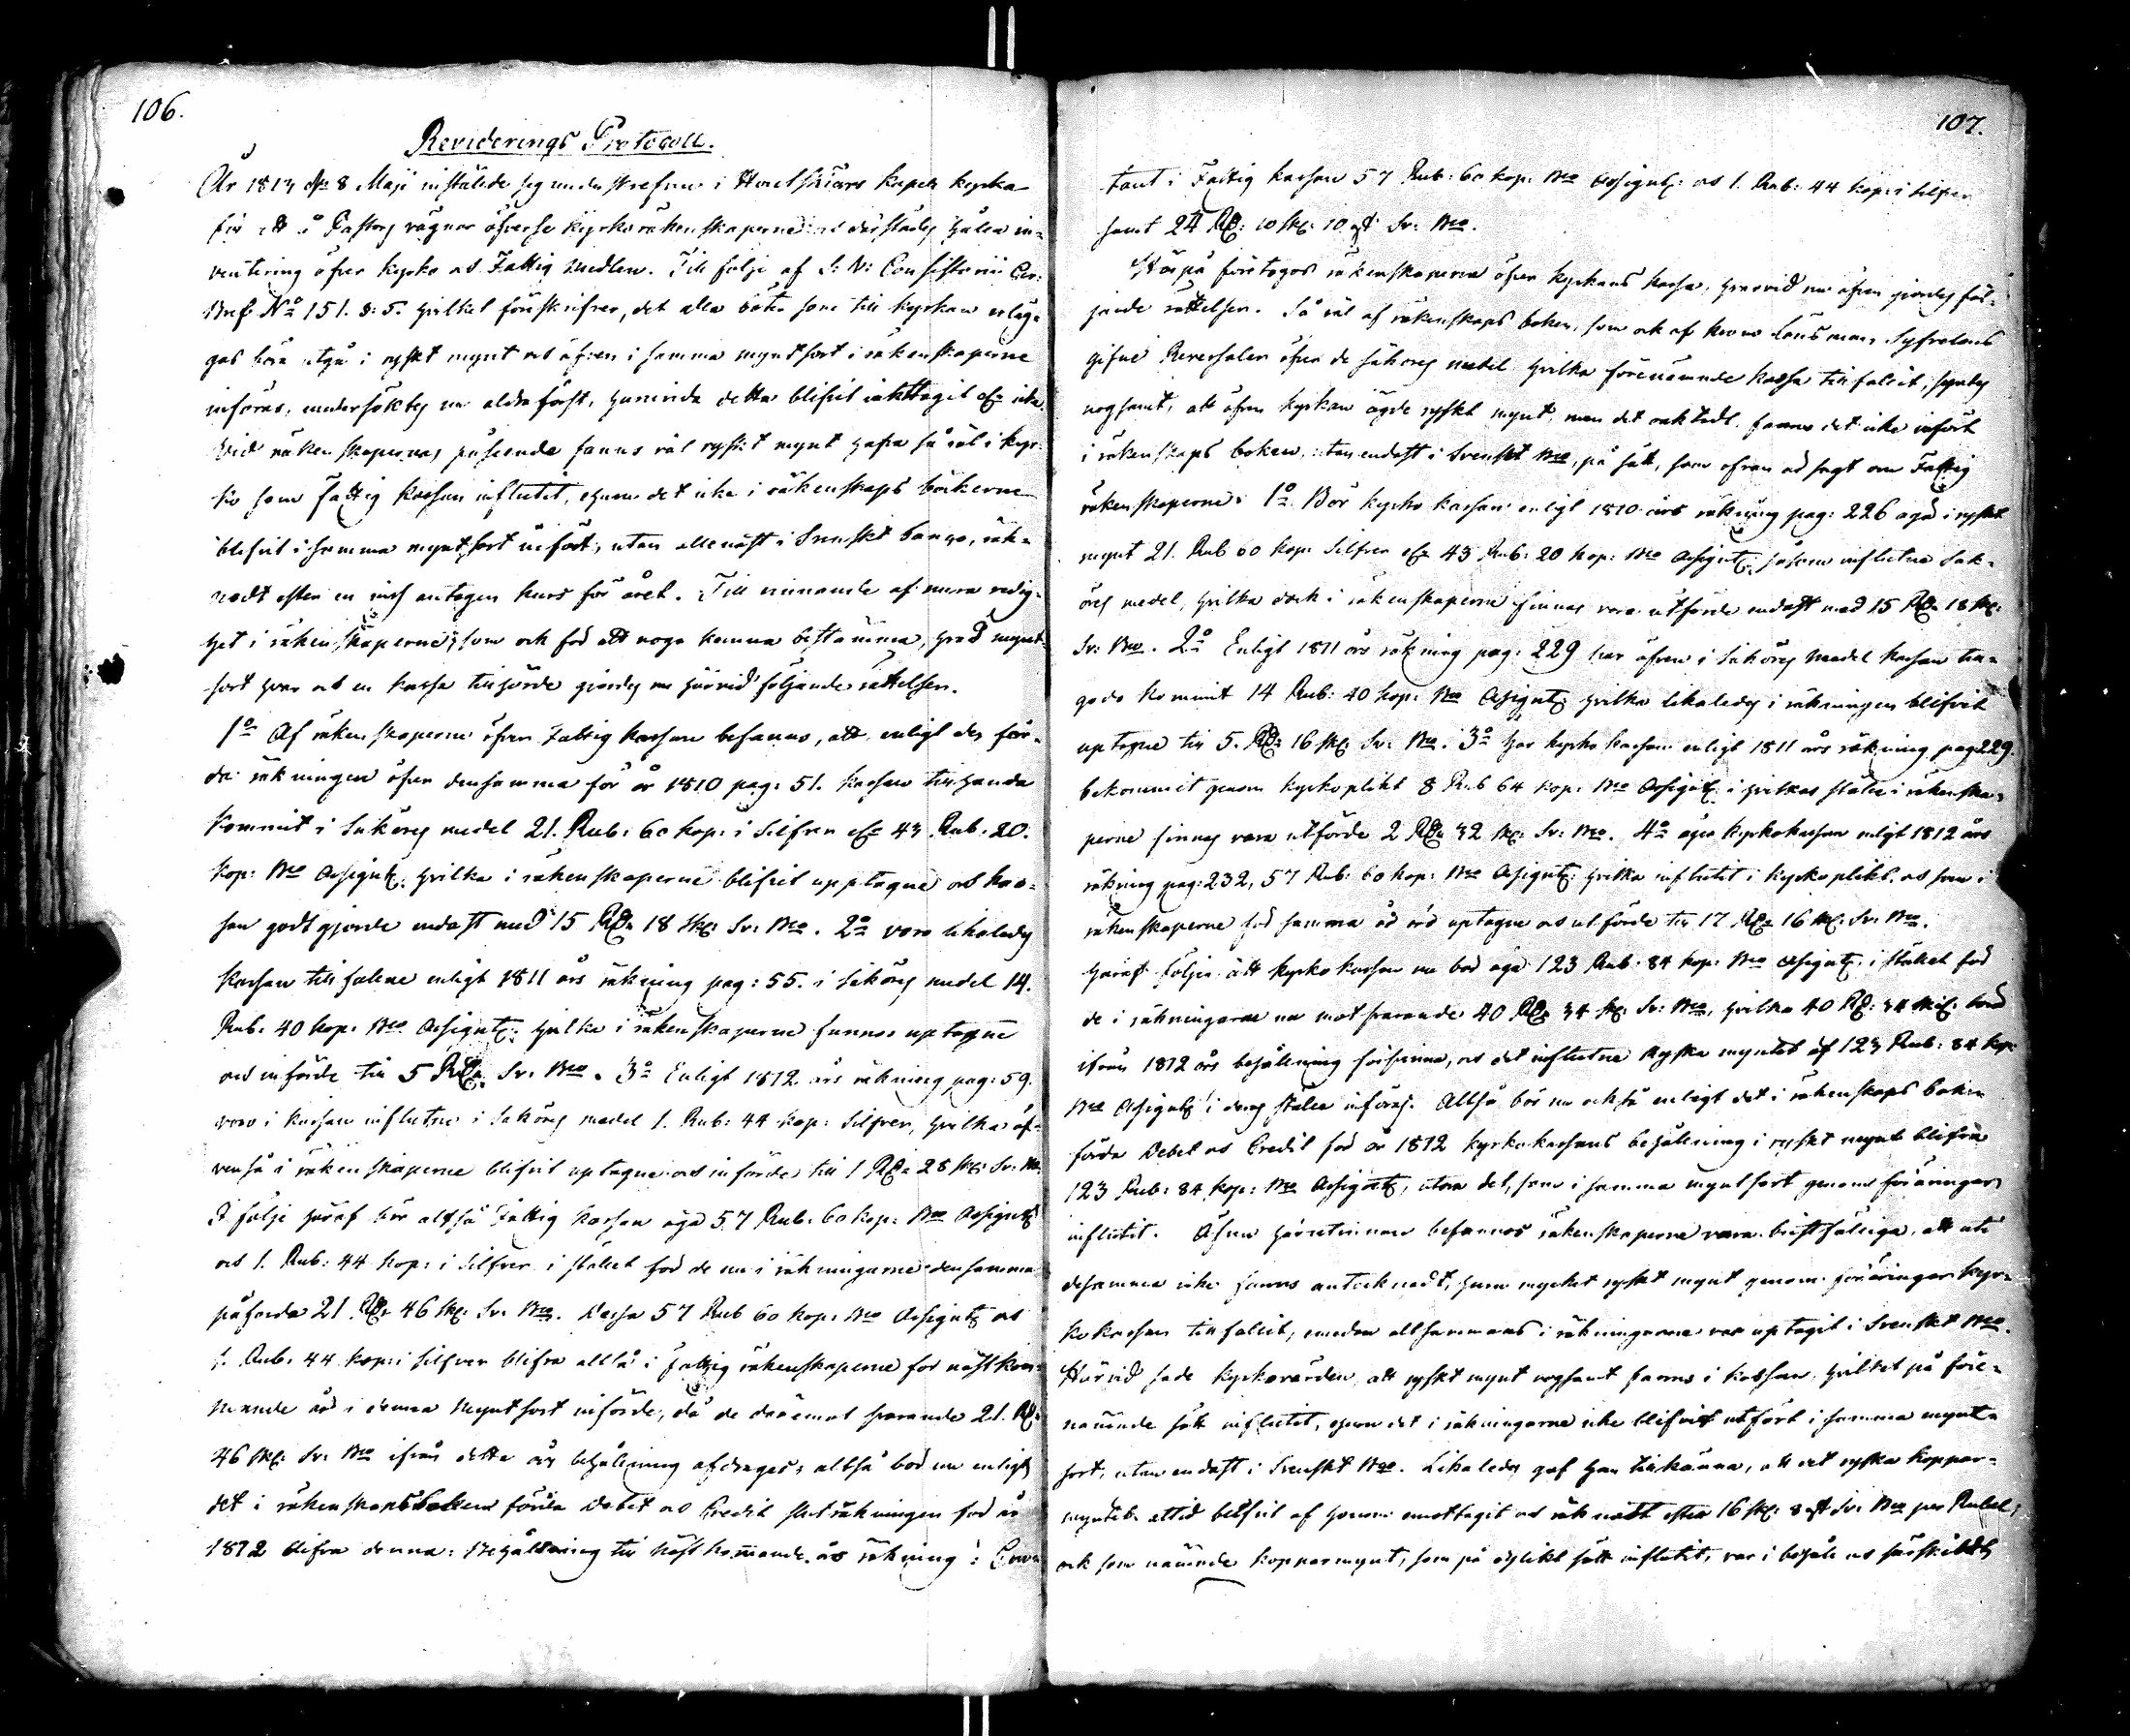 106.
Reviderings Protocoll.
År 1813 d. 8 Maji instälde sig undertecknad i Houtskärs kapell kyrka
för att å Pastors vägnar öfverse kyrko räkenskaperne och därstädes hålla in¬
ventering öfver kyrko och Fattig medlen. Till följe af S: V: Consistorii Circ:
Bref No 151. §. 5. hvilket föreskrifver, det alla böter som till kyrkan erläg¬
gas böra utgå i ryskt mynt och äfven i samma myntsort i räkenskaperne
införas, undersöktes nu aldraförst, huruvida detta blifvit iakttagit eller icke.
Vid räkenskapernas påseende fanns väl ryskt mynt hafva så väl i kyr¬
ko som Fattig kassan influtit, ehuru det icke i räkenskaps böckerne
blifvit i samma myntsort infört, utan allenast i Svenskt banco, räk¬
nadt efter en viss antagen kurs för året. Till vinnande af mera redig¬
het i räkenskaperne, som ock för att noga kunna bestämma, hvad mynt¬
sort hvar och en kassa tillhörde gjordes nu härvid följande rättelser.
1o Af räkenskaperne öfver Fattig kassan befanns, att enligt den för¬
da räkningen öfver densamma för år 1810 pag: 51. kassan tillhanda
kommit i Saköres medel 21. Rub: 60 kop: i Silfver eller 43 Rub: 20.
kop: Bco Assignat: hvilka i räkenskaperne blifvit upptagne och kas¬
san godtgjorde endast med 15 Rd: 18 sk: Sv: Bco. 2o voro likaledes
kassan tillfallne enligt 1811 års räkning pag: 55. i Saköres medel 14.
Rub: 40 kop: Bco Assignat: hvilka i räkenskaperne funnos uptagne
och införde till 5 Rd: Sv: Bco. 3o Enligt 1812 års räkning pag: 59.
voro i kassan influtne i Saköres medel 1. Rub: 44 kop: Silfver, hvilka äf¬
ven så i räkenskaperne blifvit uptagne och införde till 1 Rd: 28 sk: Sv: Bco.
I följe häraf bör altså Fattig kassan äga 57 Rub: 60 kop: Bco Assignat:
och 1. Rub: 44 kop: i Silfver i stället för de nu i räkningarne densamma
påförda 21. Rd: 46 sk: Sv: Bco. Dessa 57 Rub 60 kop: Bco Assignat: och
1. Rub: 44 kop: i Silfver blifva altså i Fattig räkenskaperne för nästkom¬
mande år i denna myntsort införde, då de däremot svarande 21. Rd:
46 sk: Sv: Bco ifrån detta års behållning afdrages, altså bör nu enligt
det i räkenskapsboken förda Debet och Credit slut räkningen för år
1812 blifva denna: Behållning till nästkommande års räkning:
107.
tant i Fattig kassan 57 Rub: 60 kop: Bco Assignat: och 1. Rub: 44 kop: i Silfver
samt 24 Rd: 10 sk: 10 rst Sv: Bco.
Härpå företogos räkenskaperna öfver kyrkans kassa, hvarvid nu äfven gjordes föl¬
jande rättelser. Så väl af räkenskaps boken, som ock af krono Länsman
gifne Reversaler öfver de Saköres medel hvilka förenämnde kassa tillfallit, syntes
nogsamt, att äfven kyrkan ägde ryskt mynt, men det oaktadt fanns det icke infört
i räkenskaps boken, utan endast i Svenskt Bco, på sätt, som ofvan är sagt om Fattig
räkenskaperne. 1o Bör kyrko kassan enligt 1810 års räkning pag: 226 äga i ryskt
mynt 21. Rub 60 kop: Silfver eller 43 Rub: 20 kop: Bco Assignat: såsom influtne Sak¬
öres medel, hvilka dock i räkenskaperne finnas vara utförde endast med 15 Rd: 18 sk:
Sv: Bco. 2o Enligt 1811 års räkning pag: 229 har äfven i Saköres medel kassan till¬
godo kommit 14 Rub: 40 kop: Bco Assignat: hvilka likaledes i räkningen blifvit
uptagne till 5. Rd: 16 sk: Sv: Bco. 3o har kyrko kassan enligt 1811 års räkning pag 229.
bekommit genom kyrkoplikt 8 Rub 64 kop: Bco Assignat: i hvilkas ställe i räkenska¬
perne finnas vara utförde 2 Rd: 32 sk: Sv: Bco. 4o äger kyrkokassan enligt 1812 års
räkning pag: 232, 57 Rub: 60 kop: Bco Assignat: hvilka influtit i kyrkoplikt, och som i
räkenskaperne för samma år äro uptagne och utförde till 17 Rd: 16 sk: Sv: Bco.
Häraf följer att kyrko kassan nu bör äga 123 Rub: 84 kop: Bco Assignat: i stället för
de i räkningarne nu motsvarande 40 Rd: 34 sk: Sv: Bco, hvilka 40 Rd: 34 sk: böra
ifrån 1812 års behållning försvinna, och det influtne Ryska myntet af 123 Rub: 84 kop:
Bco Assignat: i deras ställe införas. Altså bör nu också enligt det i räkenskaps boken
förda Debet och Credit för år 1812 kyrkokassans behållning i ryskt mynt blifva
123 Rub: 84 kop: Bco Assignat:, utom det, som i samma myntsort genom föräringar
influtit. Äfven härutinnan befunnos räkenskaperne vara bristfälliga, att uti
desamma icke fanns antecknadt, huru mycket ryskt mynt genom föräringar kyr¬
ko kassan tillfallit, medan altsammans i räkningarne var uptagit i Svenskt Bco.
Härvid sade kyrkovärden, att ryskt mynt nogsamt fanns i kassan, hvilket på före¬
nämnde sätt influtit, ehuru det i räkningarne icke blifvit utfört i samma mynt¬
sort, utan endast i Svenskt Bco. Likaledes gaf han tillkänna, att det ryska koppar¬
myntet alltid blifvit af honom emottagit och räknadt efter 16 sk: 8 rst Sv: Bco per Rubel,
ock som nämnde kopparmynt, som på dylikt sätt influtit, var i behåll och särskildt